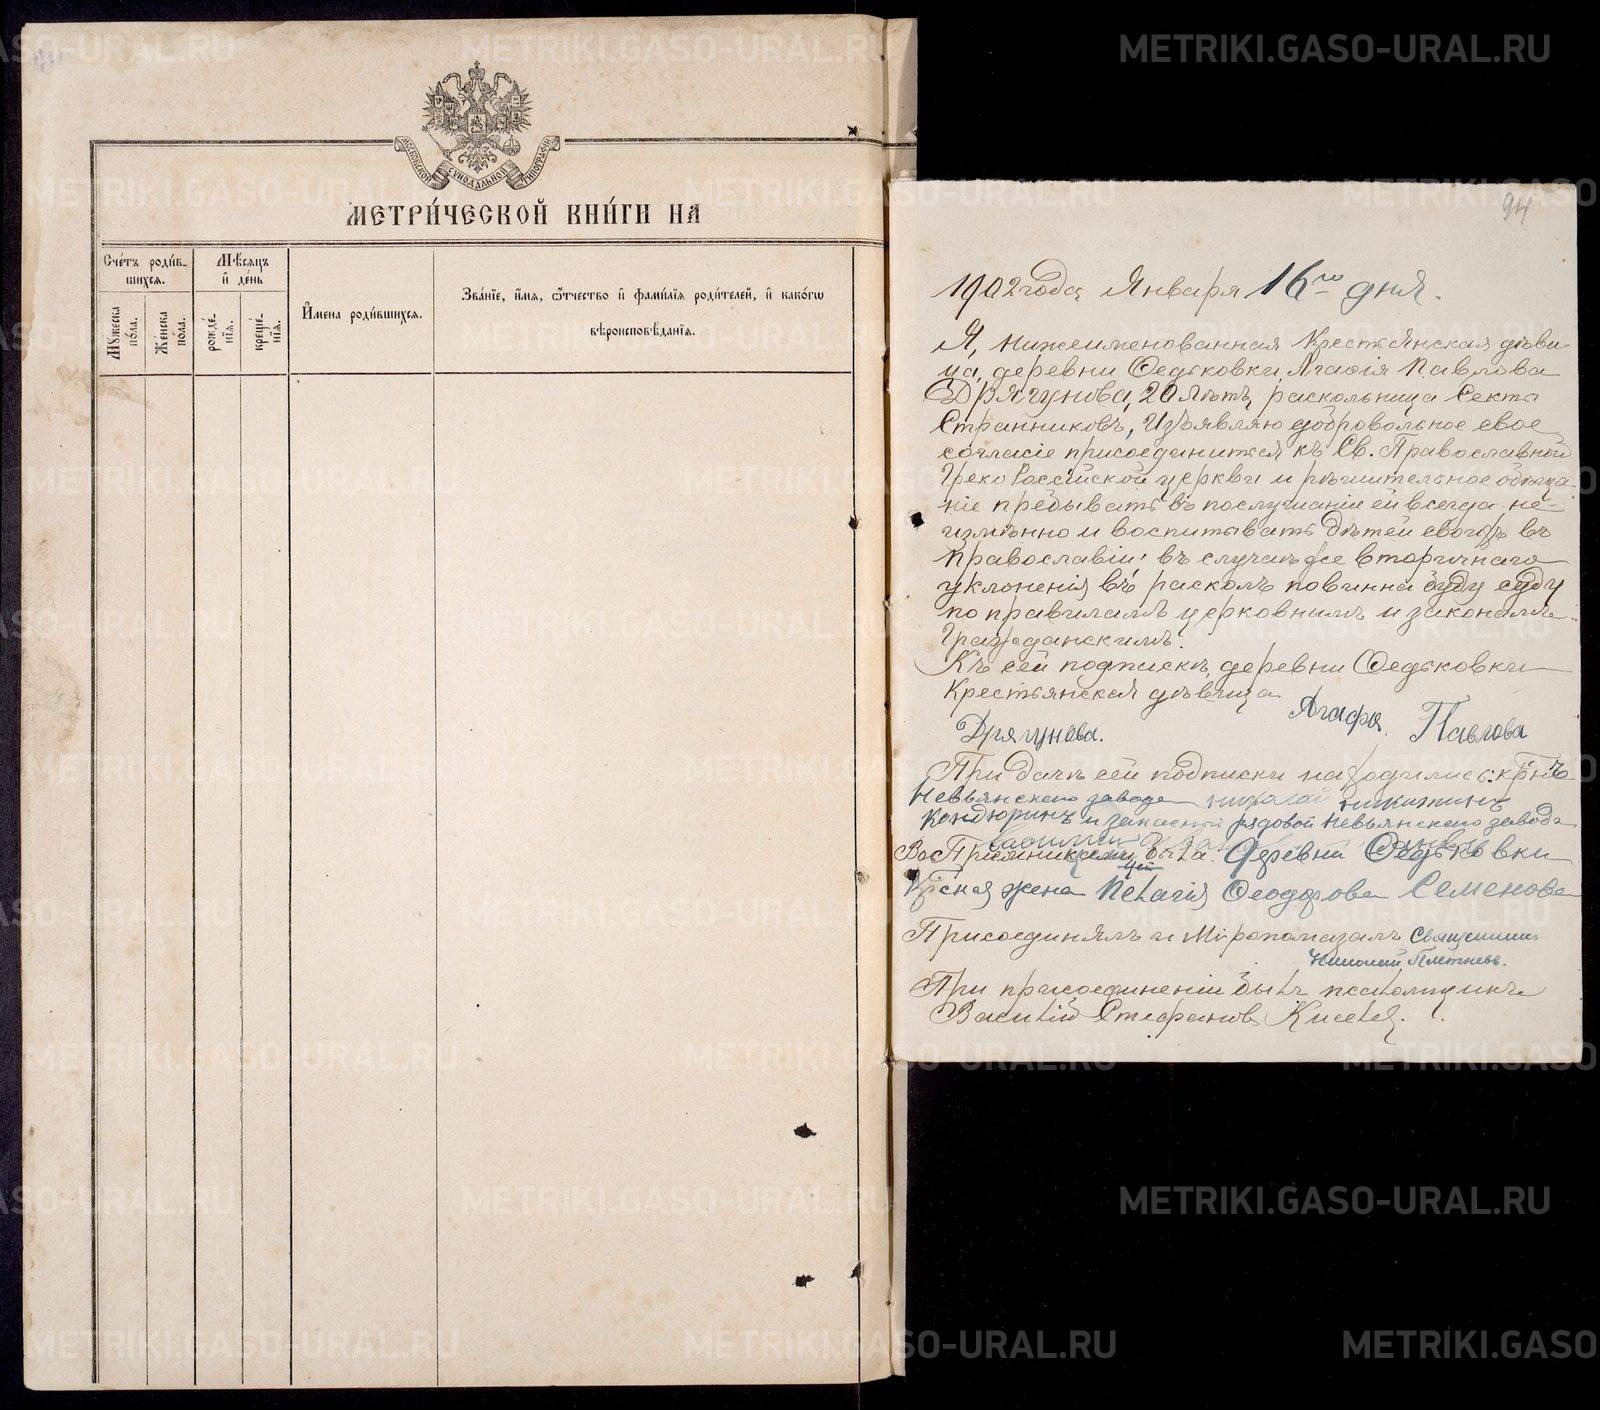 МОСКОВСКОЙ СУНОДАЛЬНОЙ ТИПОГРАФІИ
МЕТРИ́ЧЕСКОЙ КНИ́ГИ НА
Сче́тъ роди́в-
шихся.
Му́жеска
по́ла.
Же́нска
по́ла.
Мѣ́сяцъ
и҆ де́нь
рожде́-
нїя.
креще́-
нїя.
И҆мена роди́вшихся.
Зва́нїе, и҆́мя, ѻ҆́тчество и҆ фами́лїя роди́телей, и҆ како́гѡ
вѣроисповѣ́данїя.
94
1902 года Января 16го дня.
Я, нижеименованная Крестьянская дѣви-
ца, деревни Федьковки, Агафія Павлова
Дрягунова, 20 лѣтъ, раскольница Секта
Странниковъ, Изъявляю добровольное свое
согласіе присоединиться къ Св. Православной
Греко Россійской церкви и рѣшительное обѣща
ніе пребывать въ послушаніи ей всегда не-
измѣнно и воспитывать дѣтей своихъ въ
Православіи; въ случаѣ же вторичнаго
уклоненія въ расколъ повинна буду суду
по правиламъ церковнымъ и законамъ
Гражданскимъ.
Къ сей подпискѣ, деревни Федьковки
Крестьянская дѣвица
Агафя Павлова
Дрягунова.
При дачѣ сей подписки находились: крнъ
Невьянского завода николай никитинъ
Кондюринъ и запасной рядовой Невьянского завода
ВосПріемникцей была: Деревни Федьковки
Крская жена Пелагія Феодорова Семенова
Присоединялъ и Мѵропомазалъ Священникъ
Николай Плетневъ.
При присоединеніи былъ псаломщикъ
Василій Стефановъ Киселев.
METRIKI.GASO-URAL.RU